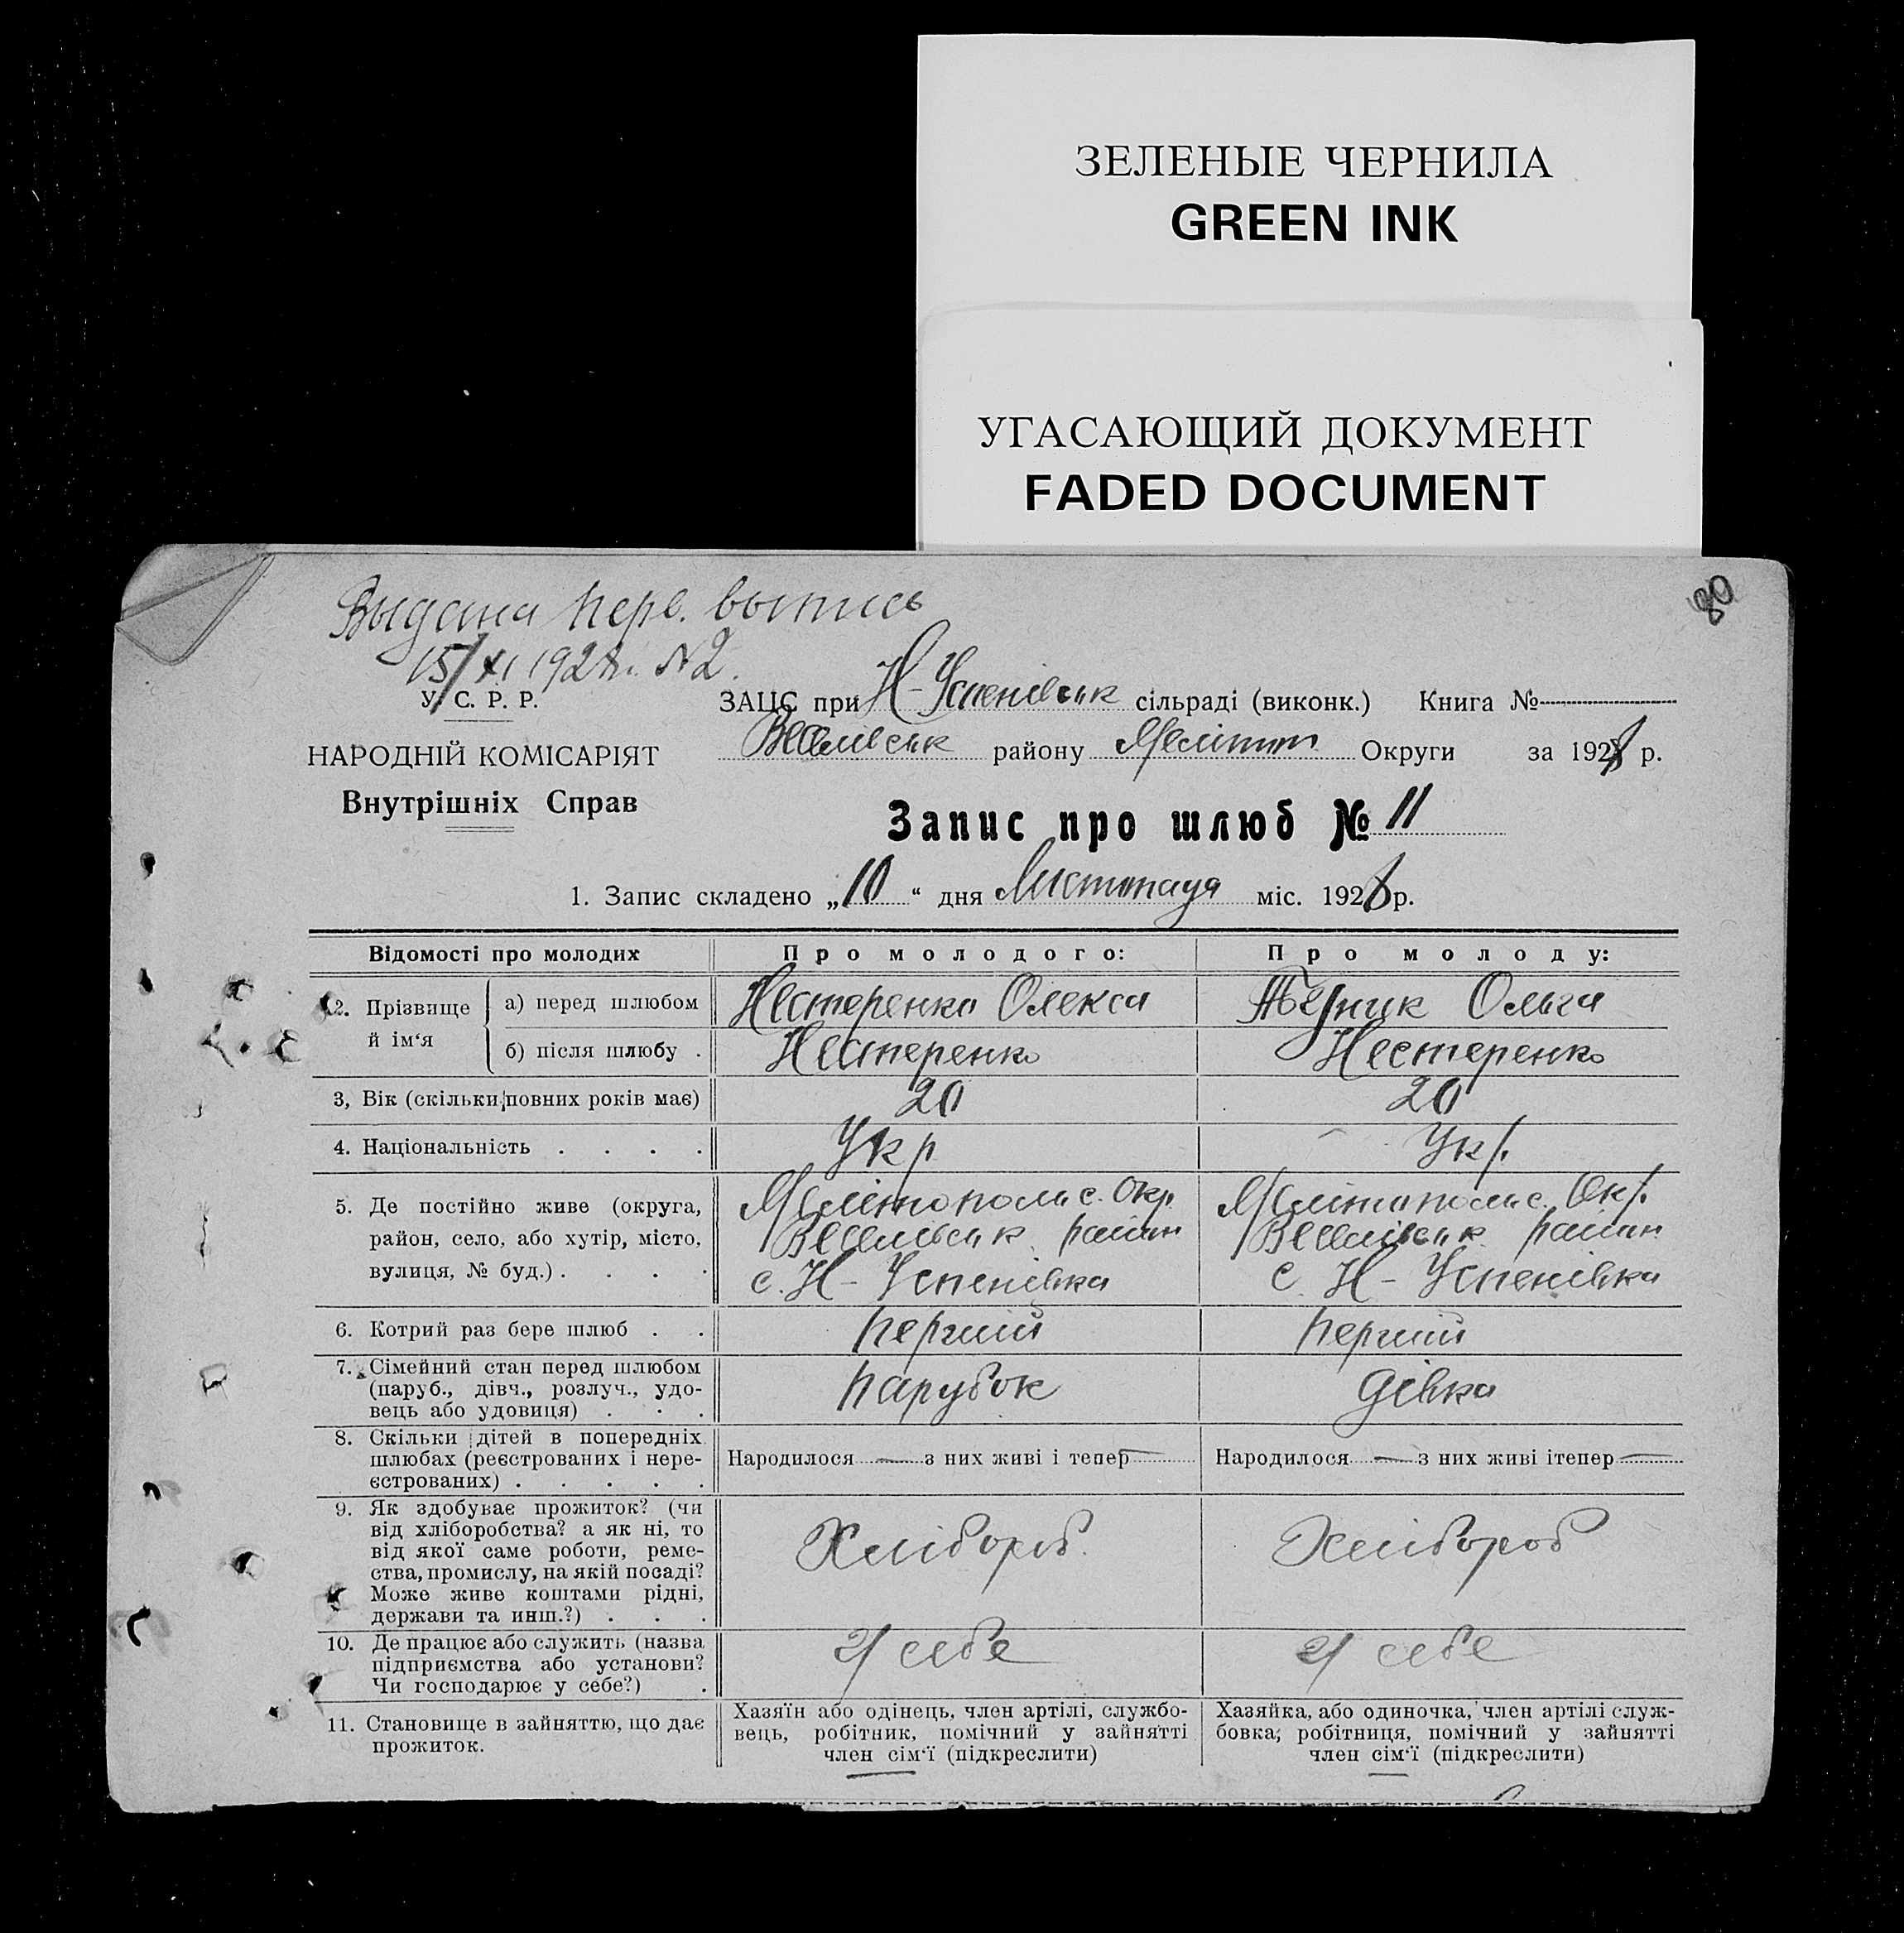 ЗЕЛЕНЫЕ ЧЕРНИЛА
GREEN INK
УГАСАЮЩИЙ ДОКУМЕНТ
FADED DOCUMENT
80
Выдана перв. выпись
15/XI 1928 г. №2.
У. С. Р. Р.
НАРОДНІЙ КОМІСАРІЯТ
Внутрішніх Справ
ЗАЦС при Н-Успенівськ сільраді (виконк.) Книга №
Веселівськ району Меліт. Округи за 1928 р.
Запис про шлюб № 11
1. Запис складено „10“ дня Листопада міс. 1928 р.
Відомості про молодих Про молодого: Про молоду:
2. Прізвище й ім‘я
а) перед шлюбом Нестеренко Олекса Ольга
б) після шлюбу . Нестеренко Нестеренко
3, Вік (скільки повних років має) 20 20
4. Національність . . . . Укр Укр.
5. Де постійно живе (округа, Мелітопольс. Окр. Мелітопольс. Окр.
район, село, або хутір, місто, Веселівськ район Веселівськ район
вулиця, № буд.) . . . . с. Н-Успенівка с. Н-Успенівка
6. Котрий раз бере шлюб . . перший перший
7. Сімейний стан перед шлюбом
(паруб., дівч., розлуч., удо-
вець або удовиця) . . . парубок дівка
8. Скільки дітей в попередніх
шлюбах (реєстрованих і нере-
єстрованих) . . . . .
Народилося — з них живі і тепер — Народилося — з них живі ітепер —
9. Як здобуває прожиток? (чи
від хліборобства? а як ні, то
від якої саме роботи, реме-
ства, промислу, на якій посаді?
Може живе коштами рідні,
держави та инш.?) . . .
Хлібороб. Хлібороб
10. Де працює або служить (назва
підприємства або установи?
Чи господарює у себе?) .
У себе У себе
11. Становище в зайняттю, що дає
прожиток.
Хазяїн або одінець, член артілі, службо-
вець, робітник, помічний у зайнятті
член сім‘ї (підкреслити)
Хазяйка, або одиночка, член артілі служ-
бовка; робітниця, помічний у зайнятті
член сім‘ї (підкреслити)